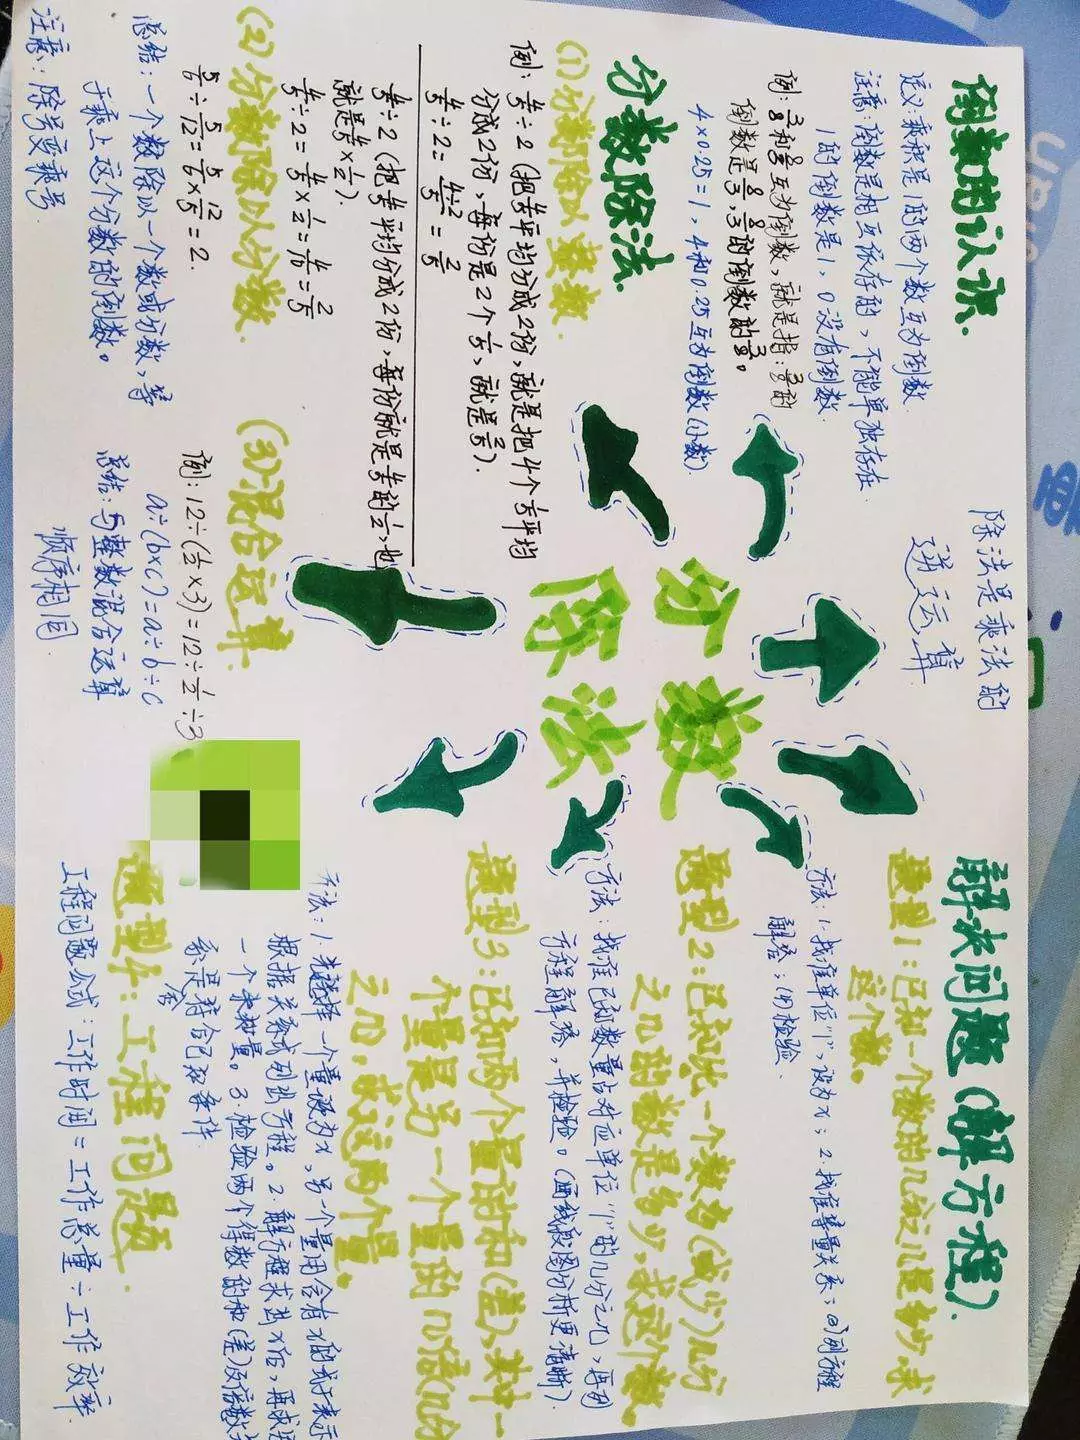 分数
除法
除法是乘法的
逆运算
倒数的认识.
定义:乘积是1的两个数互为倒数.
注意:倒数是相互依存的,不能单独存在.
1的倒数是1,0没有倒数.
例:3/8和8/3互为倒数,就是指:3/8的
倒数是8/3,8/3的倒数的3/8。
4×0.25=1,4和0.25互为倒数(小数).
分数除法.
(1)分数除以整数.
例:4/5÷2(把4/5平均分成2份,就是把4个1/5平均
分成2份,每份是2个1/5,就是2/5).
4/5÷2=4÷2/5=2/5
4/5÷2(把4/5平均分成2份,每份就是4/5的1/2,也
就是4/5×1/2).
4/5÷2=4/5×1/2=4/10=2/5
(2)分数除以分数.
5/6÷5/12=5/6×12/5=2.
总结:一个数除以一个数或分数,等
于乘上这个分数的倒数。
注意:除号变乘号.
(3)混合运算.
例:12÷(1/2×3)=12÷1/2÷3
a÷(b×c)=a÷b÷c
总结:与整数混合运算
顺序相同.
解决问题(解方程).
题型1:已知一个数的几分之几是多少,求
这个数.
方法:1.找准单位"1",设为x;2.找准等量关系;(3)列方程
解答;(4)检验.
题型2:已知比一个数多(或少)几分
之几的数是多少,求这个数.
方法:找准已知数量占对应单位"1"的几分之几,再用
方程解答,并检验。(画线段图分析更清晰).
题型3:已知两个量的和(差),其中一
个量是另一个量的几倍(几分
之几),求这两个量.
方法:1.先选择一个量设为x,另一个量用含有x的式子表示
根据关系式列出方程。2.解方程求出x后,再求出
一个未知量。3.检验两个得数的和(差)及倍数关
系是否符合已知条件
题型4:工程问题
工程问题公式:工作时间=工作总量÷工作效率.